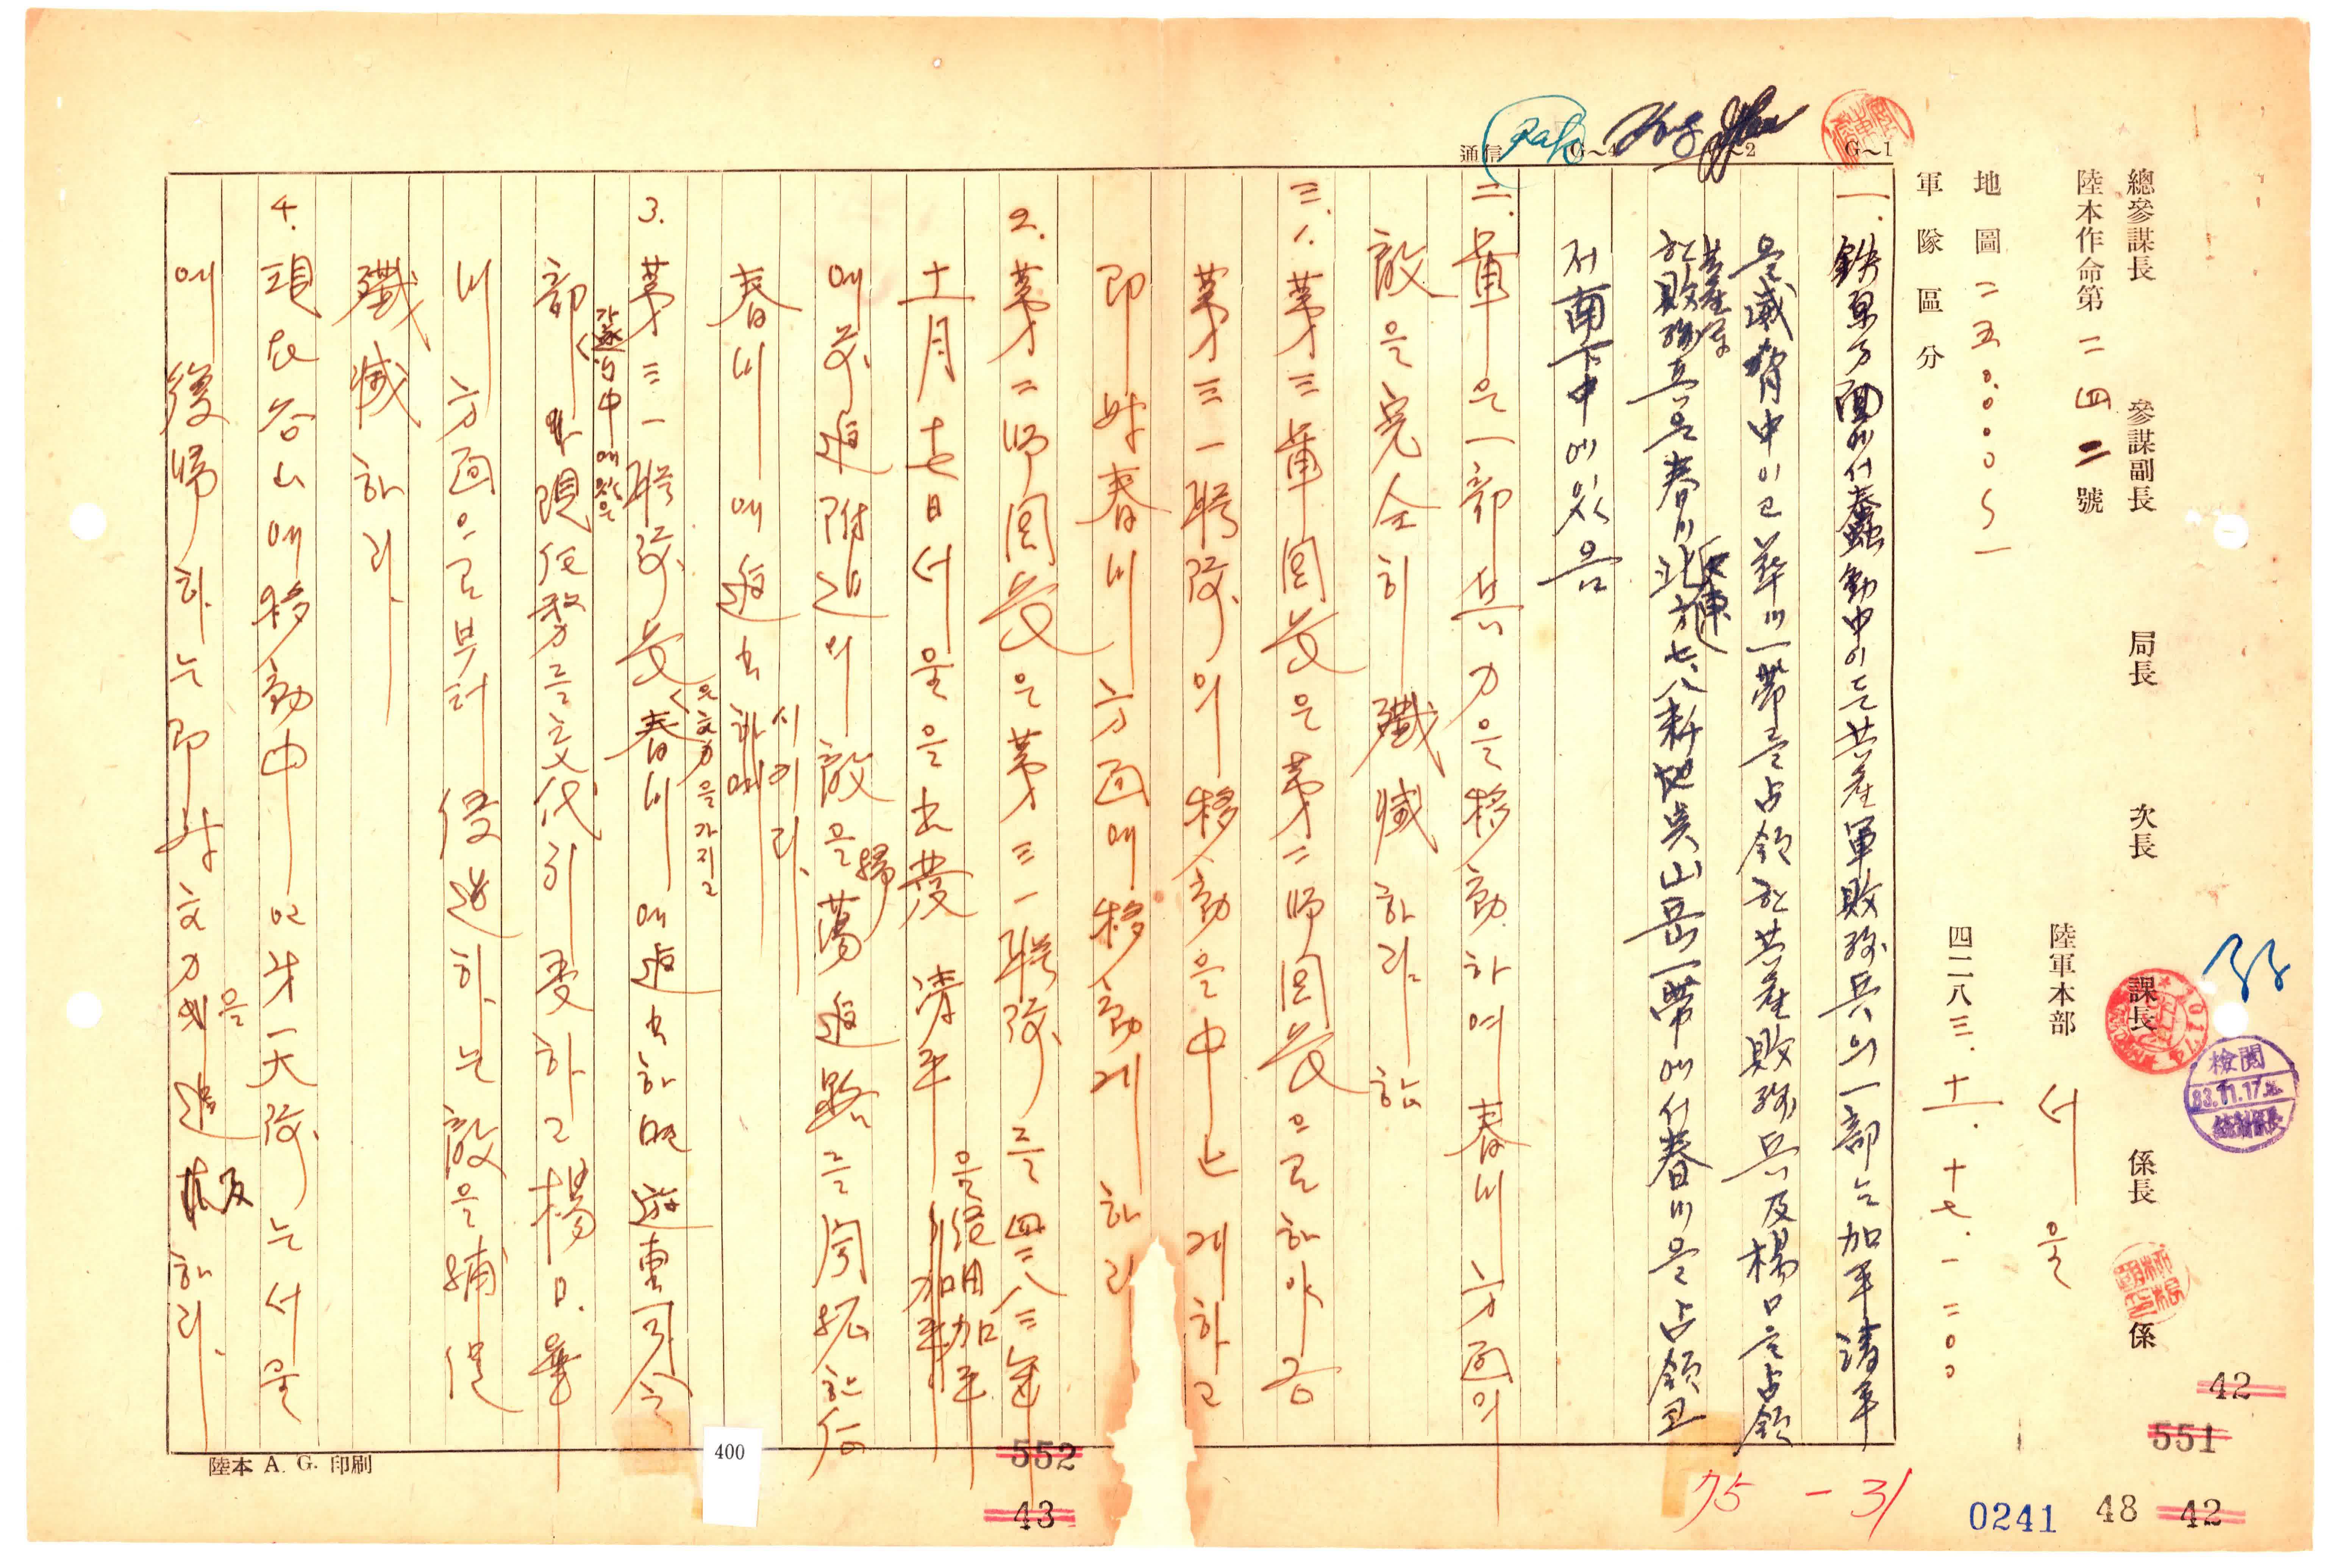 總參謀長 參謀副長 局長 次長 課長 係長 係
陸本作命第二四二號
陸軍本部 서울
地圖 二五0.000分一
四二八三.十一.十七.一二00
軍隊區分
通信 G~4 G~2 G~1
Pak
檢閱
83.11.17
一. 鉄原方面에서蠢動中이든共産軍敗殘兵의一部는加平淸平
을威脅中이고華川一帶를占領한共産敗殘兵及楊口를占領
한共産軍敗殘兵은春川北方七、八粁地点山岳一帶에서春川을占領코
저南下中에있음
二. 軍은一部兵力을移動하여春川方面의
敵을完全히殲滅하려함
三. 1. 第三軍團長은第二師團長으로하야금
第三一聯隊의移動을中止게하고
即時春川方面에移動케하라
2. 第二師團長은第三一聯隊를四二八三年
十一月十七日서울을出發淸平을經由加平
에努進附近의敵을掃蕩進路를開拓한后
春川에進出시키라
3. 第三一聯隊長은主力을가지고春川에進出하면遊東司令
部가遂行中에있는現任務를交代引受하고楊口.華
川方面으로부터侵進하는敵을捕促
殲滅하라
4. 現在谷山에移動中인第一大隊는서울
에復歸하는即時主力을追及하라.
陸本 A. G. 印刷
400
552
43
75-31
0241
48
42
551
42